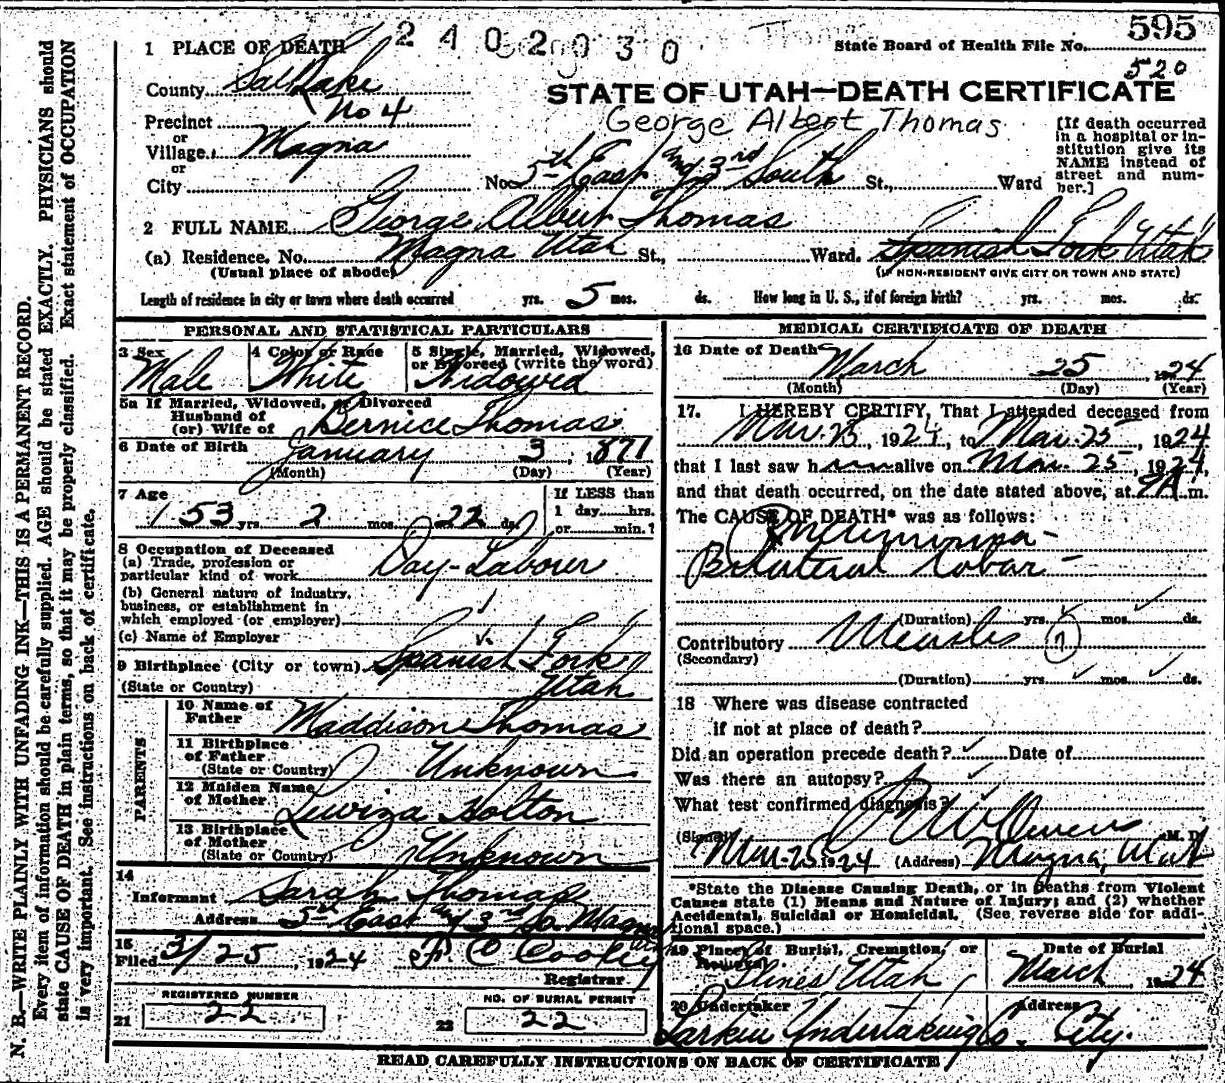 N. B.—WRITE PLAINLY WITH UNFADING INK—THIS IS A PERMANENT RECORD.
Every item of information should be carefully supplied. AGE should be stated EXACTLY. PHYSICIANS should
state CAUSE OF DEATH in plain terms, so that it may be properly classified. Exact statement of OCCUPATION
is very important. See instructions on back of certificate.
2402030
State Board of Health File No. 595
520
1 PLACE OF DEATH
County Salt Lake
STATE OF UTAH—DEATH CERTIFICATE
Precinct No 4
George Albert Thomas
or
Village Magna
or
City
No. 5th East and 3rd South St., Ward
[If death occurred
in a hospital or in-
stitution give its
NAME instead of
street and num-
ber.]
2 FULL NAME George Albert Thomas
(a) Residence, No. Magna Utah St., Ward. Spanish Fork Utah
(Usual place of abode) (If NON-RESIDENT GIVE CITY OR TOWN AND STATE)
Length of residence in city or town where death occurred yrs. 5 mos. ds. How long in U. S., if of foreign birth? yrs. mos. ds.
PERSONAL AND STATISTICAL PARTICULARS
3 Sex Male
4 Color or Race White
5 Single, Married, Widowed,
or Divorced (write the word)
Widowed
5a If Married, Widowed, or Divorced
Husband of
(or) Wife of Bernice Thomas
6 Date of Birth January 3, 1871
(Month) (Day) (Year)
7 Age
53 yrs. 2 mos. 22 ds.
If LESS than
1 day hrs.
or min.?
8 Occupation of Deceased
(a) Trade, profession or
particular kind of work Day-Laborer
(b) General nature of industry,
business, or establishment in
which employed (or employer)
(c) Name of Employer
9 Birthplace (City or town) Spanish Fork
(State or Country) Utah
PARENTS
10 Name of
Father Maddison Thomas
11 Birthplace
of Father
(State or Country) Unknown
12 Maiden Name
of Mother Lewiza Holton
13 Birthplace
of Mother
(State or Country) Unknown
14
Informant Sarah Thomas
Address 5th East and 3rd So. Magna
15
Filed 3/25, 1924 Cooley
Registrar
REGISTERED NUMBER
21 22
NO. OF BURIAL PERMIT
22 22
MEDICAL CERTIFICATE OF DEATH
16 Date of Death March 25, 1924
(Month) (Day) (Year)
17. I HEREBY CERTIFY, That I attended deceased from
Mar. 25, 1924, to Mar. 25, 1924
that I last saw him alive on Mar. 25, 1924,
and that death occurred, on the date stated above, at 9A m.
The CAUSE OF DEATH* was as follows:
Pneumonia -
Bilateral Lobar -
(Duration) yrs. mos. ds.
Contributory Measles (?)
(Secondary)
(Duration) yrs. mos. ds.
18 Where was disease contracted
if not at place of death?
Did an operation precede death? Date of
Was there an autopsy?
What test confirmed diagnosis?
(Signed) Owens M. D.
Mar. 25 1924 (Address) Magna, Utah
*State the Disease Causing Death, or in Deaths from Violent
Causes state (1) Means and Nature of Injury; and (2) whether
Accidental, Suicidal or Homicidal. (See reverse side for addi-
tional space.)
19 Place of Burial, Cremation, or
Removal
Utah
Date of Burial
March 1924
20 Undertaker
Larkin Undertaking Co.
Address
City.
READ CAREFULLY INSTRUCTIONS ON BACK OF CERTIFICATE